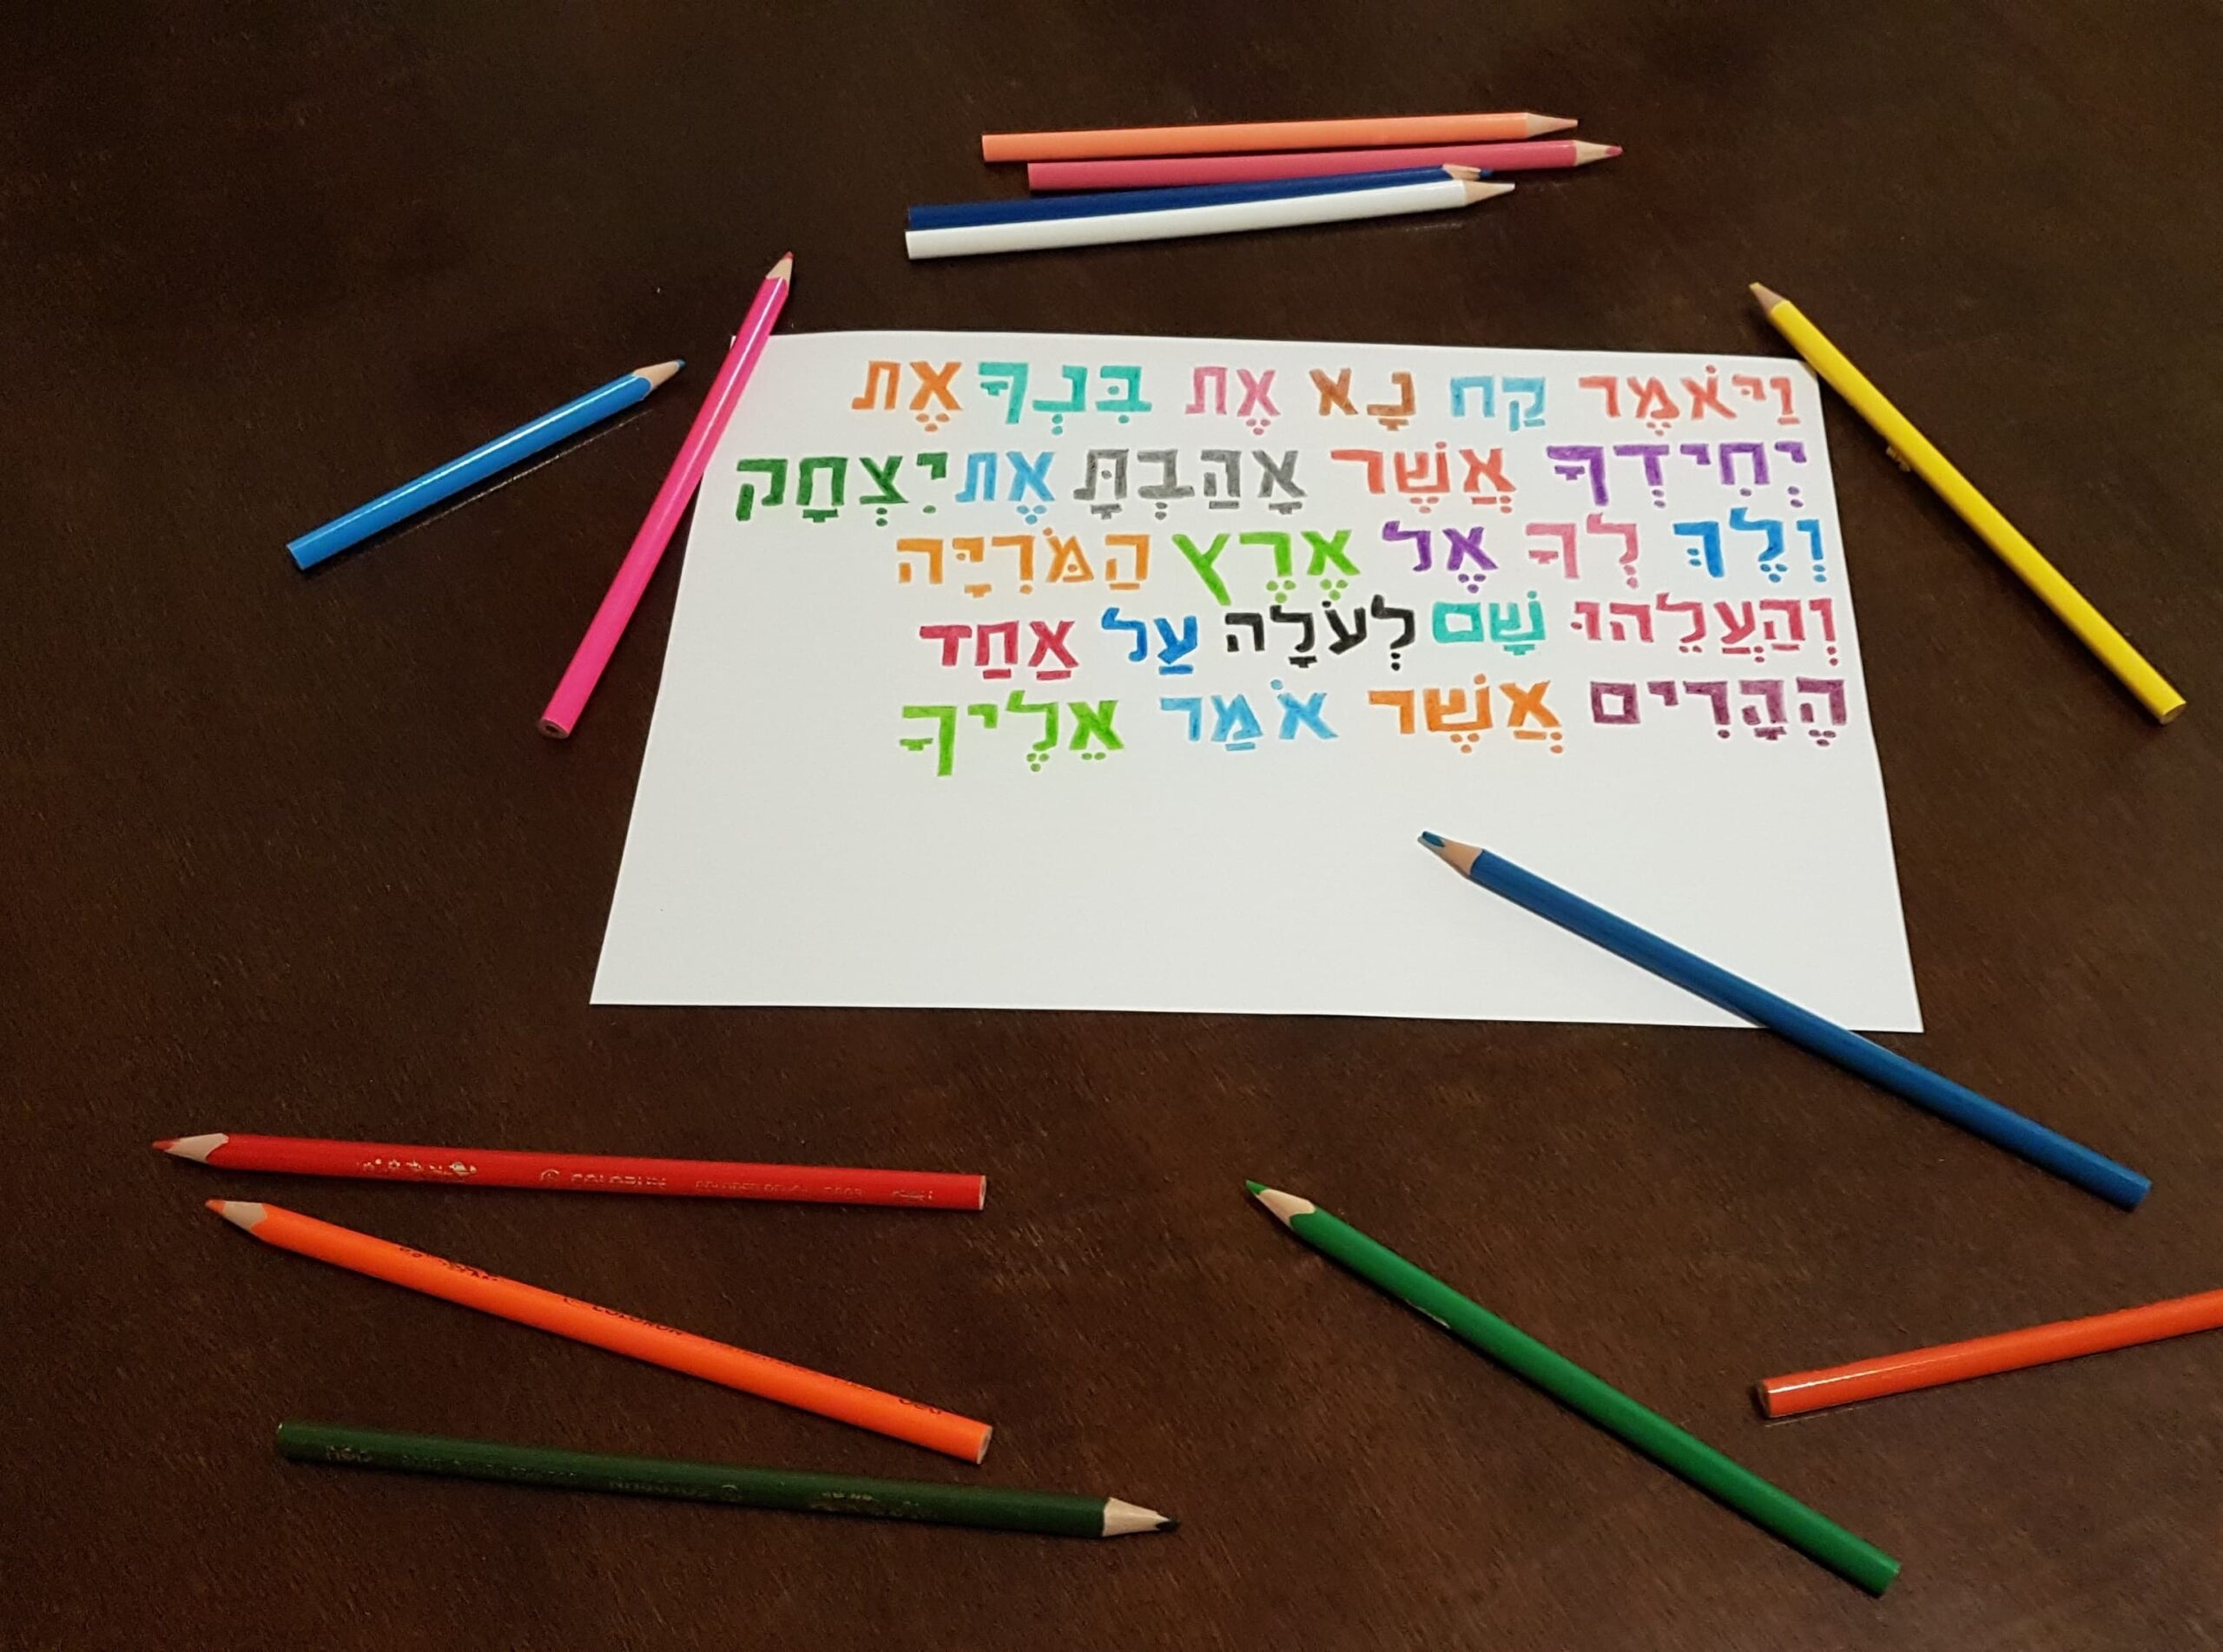 וַיֹּאמֶר קַח נָא אֶת בִּנְךָ אֶת
יְחִידְךָ אֲשֶׁר אָהַבְתָּ אֶת יִצְחָק
וְלֶךְ לְךָ אֶל אֶרֶץ הַמֹּרִיָּה
וְהַעֲלֵהוּ שָׁם לְעֹלָה עַל אַחַד
הֶהָרִים אֲשֶׁר אֹמַר אֵלֶיךָ